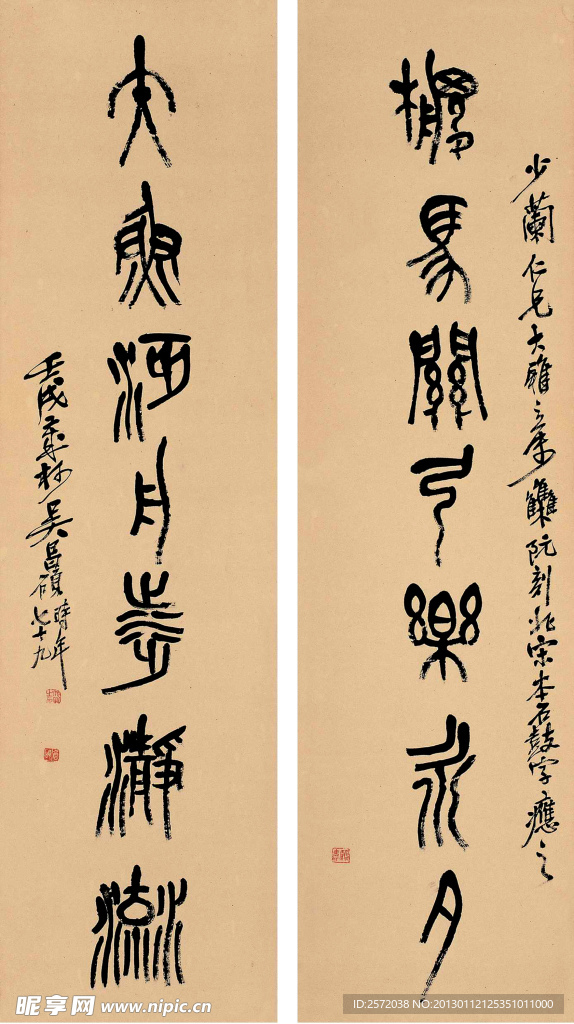 少蘭仁兄大雅之屬集阮刻北宋本石鼓字應之
馬關弓樂永夕
魚沔月瀞流
壬戌秋杪吳昌碩時年七十九
昵享网 www.nipic.cn
ID:2572038 NO:20130112125351011000